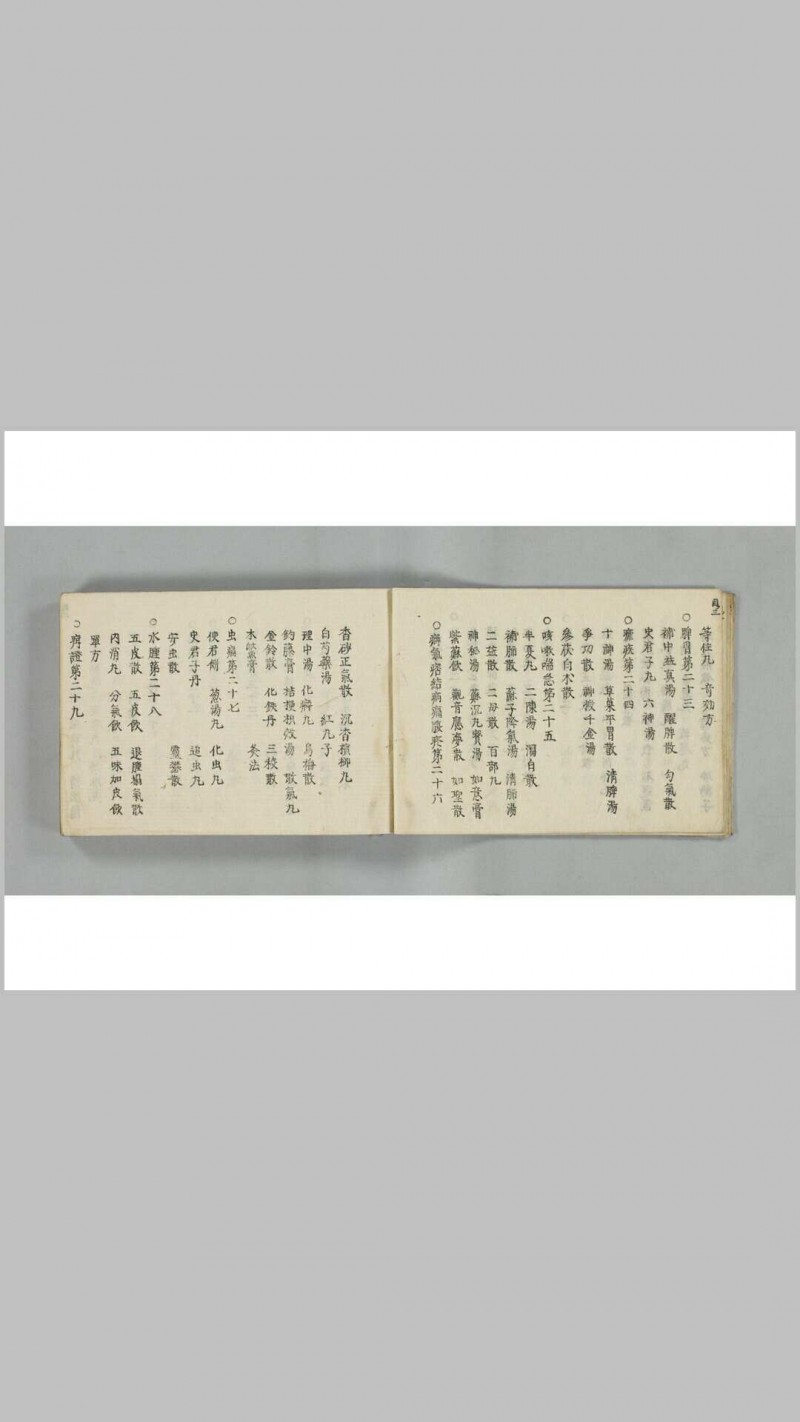 目二
等住丸 奇効方
○脾胃第二十三
補中益真湯 醒脾散 匀氣散
史君子丸 六神湯
○瘧疾第二十四
十神湯 草菓平胃散 清脾湯
爭功散 神授千金湯
參茯白朮散
○咳嗽喘急第二十五
半夏丸 二陳湯 瀉白散
補肺散 蘇子降氣湯 清肺湯
二益散 二母散 百部丸
神秘湯 蘇沉九寳湯 如意膏
紫蘇飲 觀音應夢散 如聖散
○癖氣痞結病痛脹疾第二十六
香砂正氣散 沉香檳榔丸
白芍藥湯 紅丸子
理中湯 化癖丸 烏梅散
釣藤膏 桔梗枳殼湯 散氣丸
金鈴散 化鉄丹 三稜散
木鱉膏 灸法
○虫痛第二十七
使君餅 蔥湯丸 化虫丸
史君子丹 追虫丸
安虫散 靈礬散
○水腫第二十八
五皮散 五皮飲 退腫塌氣散
内消丸 分氣飲 五味加皮飲
單方
○疳證第二十九